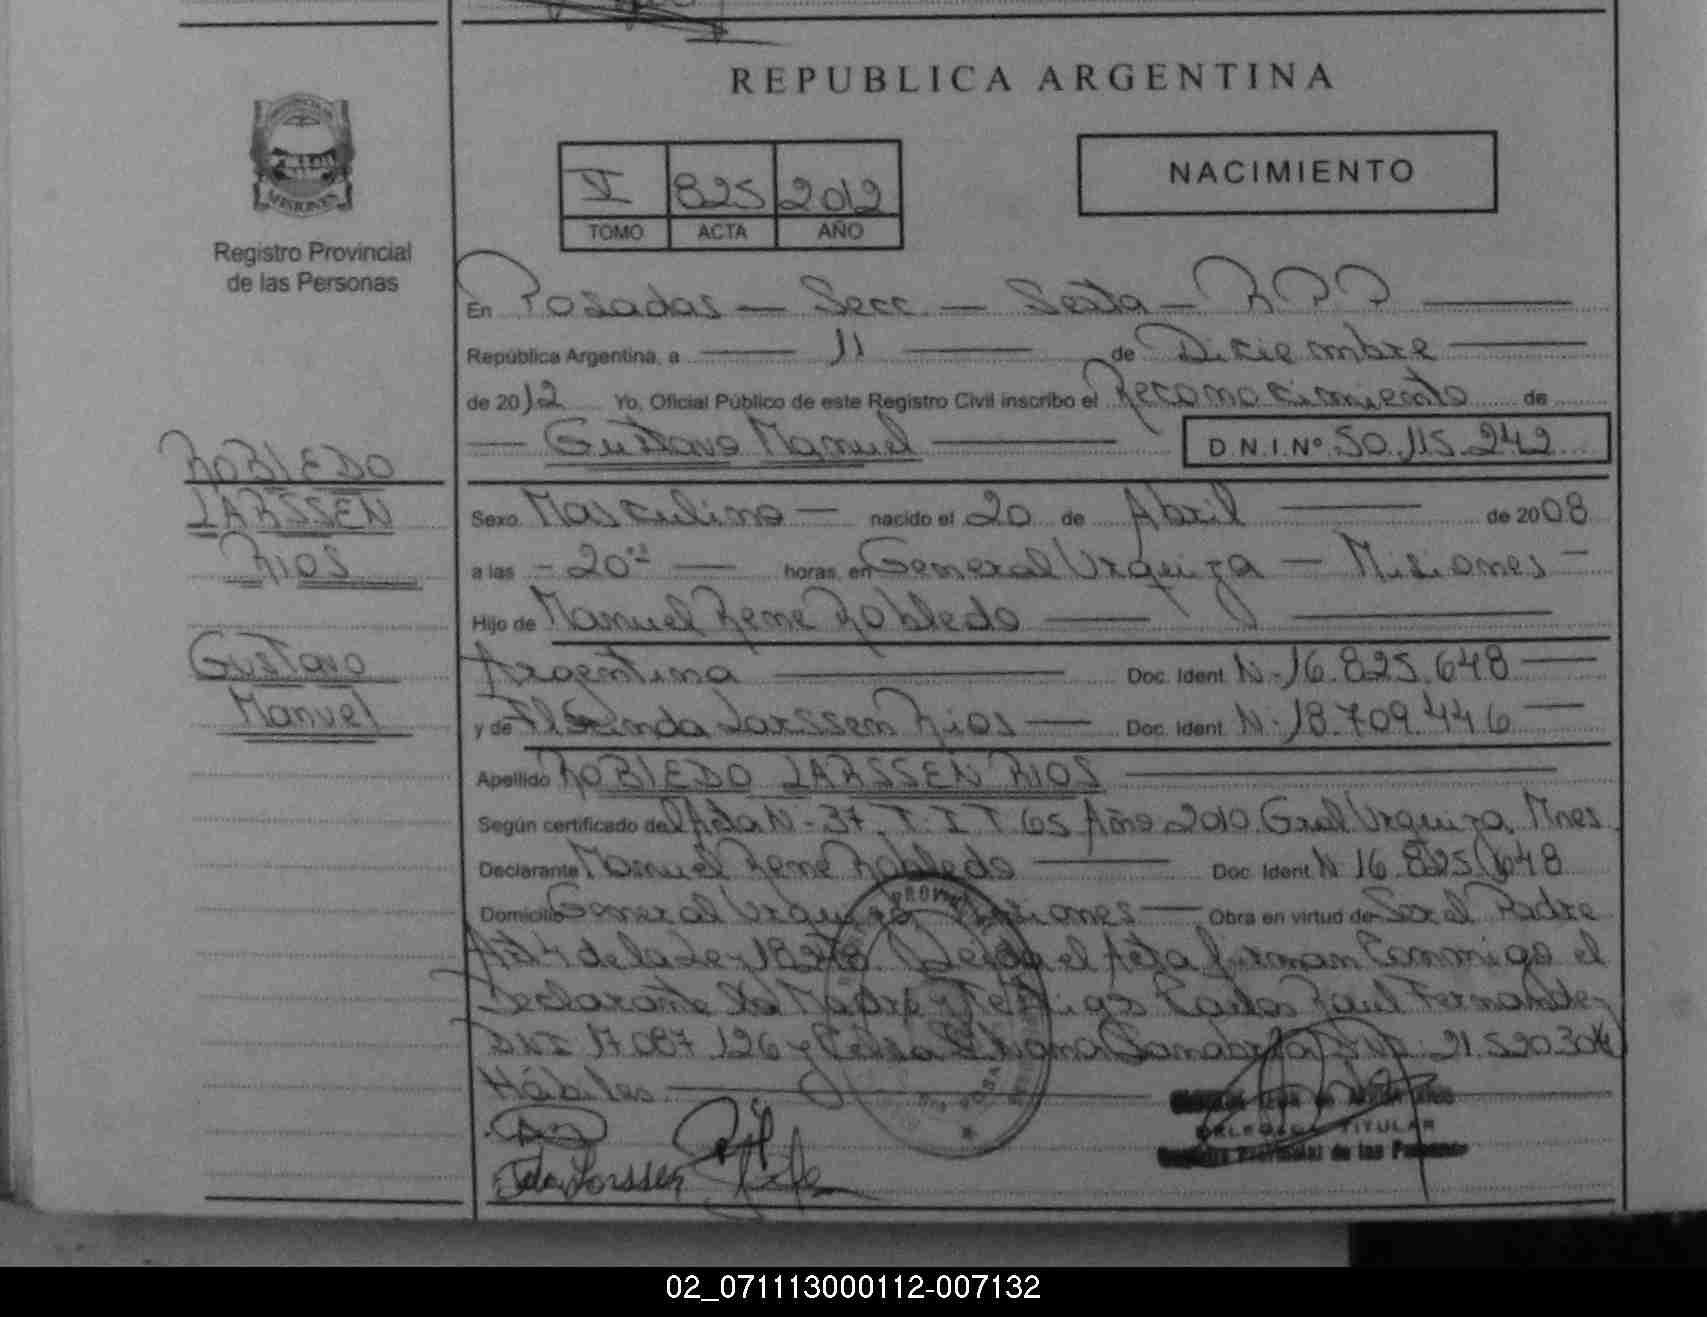 REPUBLICA ARGENTINA
NACIMIENTO
825 2012
TOMO ACTA AÑO
MISIONES
Registro Provincial
de las Personas
En Posadas — Secc. — Sexta — R P P
República Argentina, a 11 de Diciembre
de 2012 Yo, Oficial Público de este Registro Civil inscribo el Reconocimiento de
Gustavo Manuel D.N.I.Nº 50.115.242
ROBLEDO
LARSSEN
RIOS
Gustavo
Manuel
Sexo Masculino — nacido el 20 de Abril de 2008
a las - 20 — horas, en General Urquiza — Misiones —
Hijo de Manuel Rene Robledo
Argentina Doc. Ident. N- 16.825.648
y de Larssen Rios — Doc. Ident. N- 18.709.446
Apellido ROBLEDO LARSSEN RIOS
Según certificado del Acta N- 37. T. I T. 65 Año 2010. Gral Urquiza, Mnes.
Declarante Manuel Rene Robledo Doc. Ident. N 16.825.648
Domicilio General Urquiza Misiones — Obra en virtud de Ser el Padre
Art 4 de la Ley 18248. Leida el Acta firman Conmigo el
Declarante la Madre y Testigos Carlos Raul Fernandez
DNI 17.087.126 y DNI: 21.520.304
Hábiles.
Larssen
DELEGADA TITULAR
Registro Provincial de las Personas
02_071113000112-007132